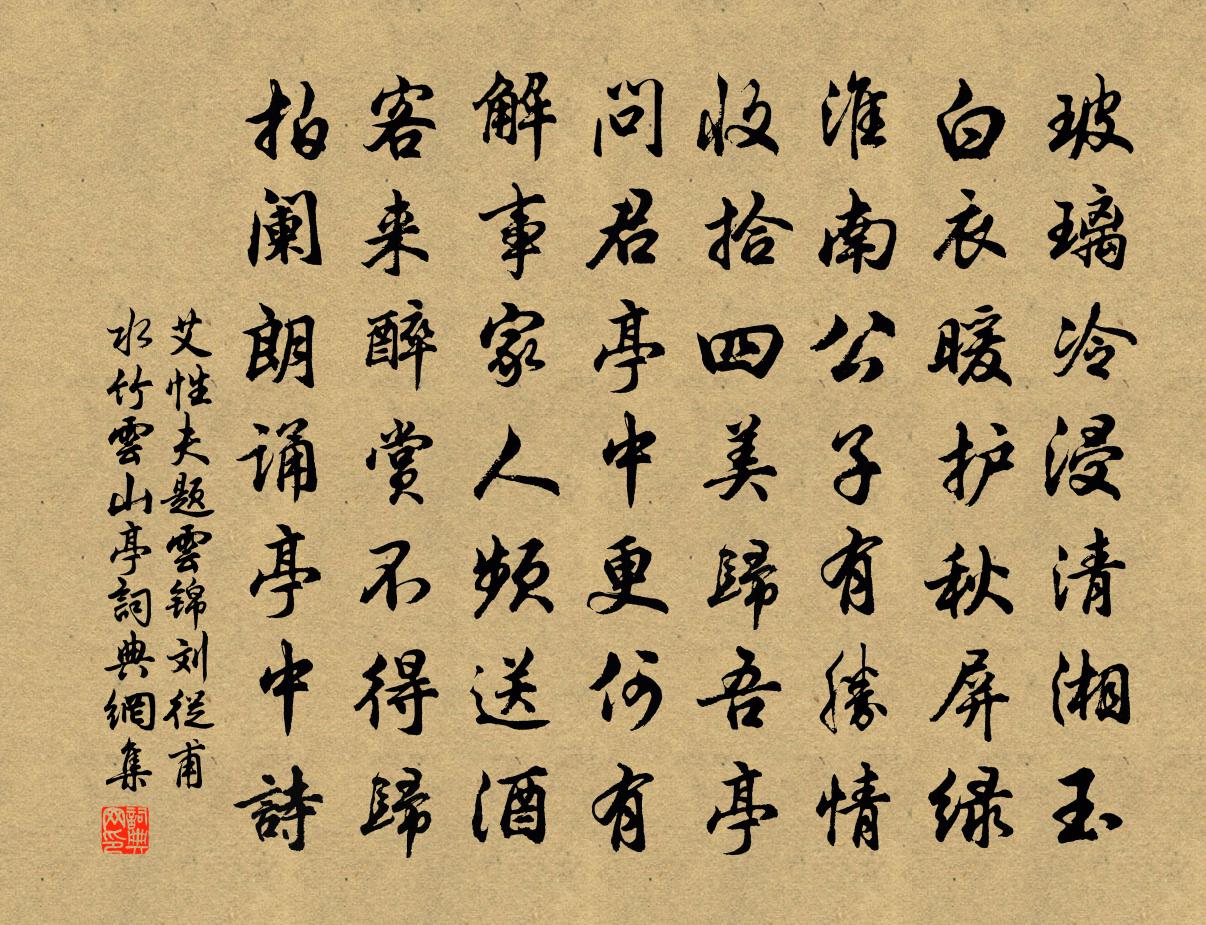 玻璃冷浸清湘玉
白衣暖护秋屏绿
淮南公子有勝情
收拾四美歸吾亭
问君亭中更何有
解事家人频送酒
客来醉赏不得歸
拍阑朗诵亭中詩
艾性夫题雲锦刘從甫
水竹雲山亭詞典網集
詞典网印